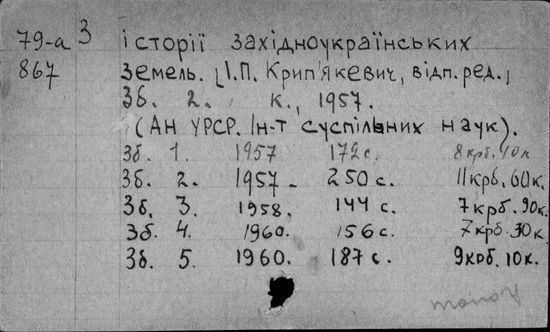 79-а З історії західноукраїнських
867 земель. [І.П. Крип'якевич, відп. ред.]
Зб. 2. К., 1957.
(АН УРСР. Ін-т суспільних наук).
Зб. 1. 1957 172 с. 8 крб. 40 к
Зб. 2. 1957 - 250 с. 11 крб. 60 к.
Зб. 3. 1958. 144 с. 7 крб. 90 к.
Зб. 4. 1960. 156 с. 7 крб. 30 к.
Зб. 5. 1960. 187 с. 9 крб. 10 к.